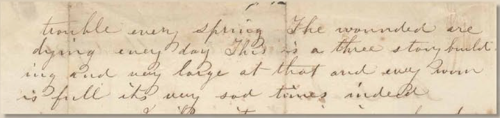 trouble every spring The wounded are
dying every day This is a three story build
ing and very large at that and every room
is full its very sad times indeed